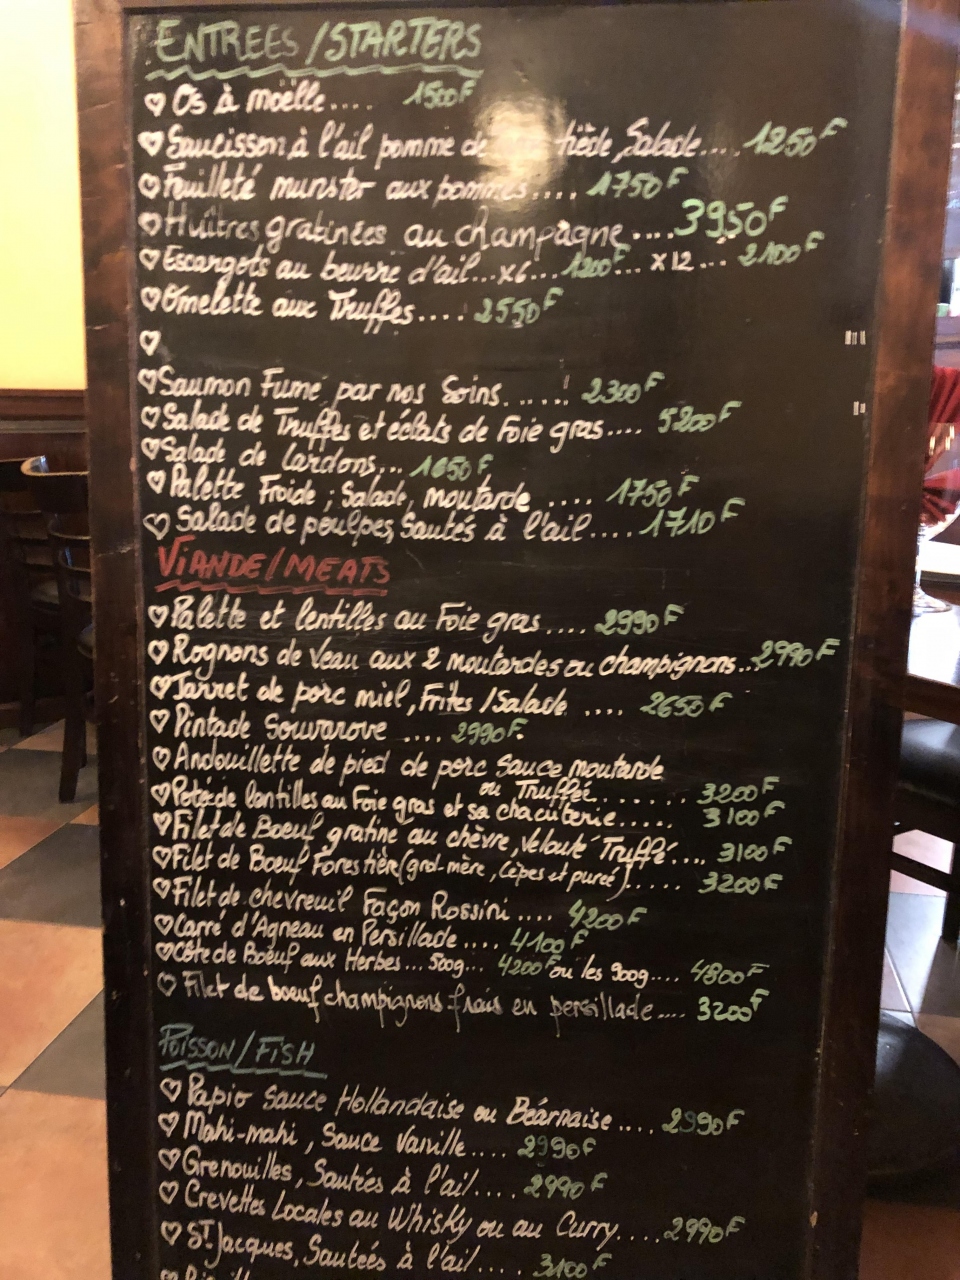 ENTREES / STARTERS
Os à moëlle.... 1500F
Saucisson à l'ail pomme de tiède, Salade.... 1250F
Feuilleté munster aux pommes.... 1750F
Huîtres gratinées au champagne.... 3950F
Escargots au beurre d'ail...x6... 1200F... x12... 2100F
Omelette aux Truffes.... 2550F
Saumon Fumé par nos Soins.....! 2300F
Salade de Truffes et éclats de Foie gras.... 5200F
Salade de Lardons... 1650F
Palette Froide ; Salade, moutarde .... 1750F
Salade de poulpes, Sautés à l'ail.... 1710F
VIANDE / MEATS
Palette et lentilles au Foie gras.... 2990F
Rognons de Veau aux 2 moutardes ou champignons... 2990F
Jarret de porc miel, Frites / Salade .... 2650F
Pintade Souvarove .... 2990F.
Andouillette de pied de porc Sauce moutarde
ou Truffée....... 3200F
Potée de lentilles au Foie gras et sa chacuterie..... 3100F
Filet de Boeuf gratiné au chèvre, Velouté Truffé.... 3100F
Filet de Boeuf Forestière (grd-mère, Cèpes et purée)..... 3200F
Filet de chevreuil Façon Rossini.... 4200F
Carré d'Agneau en Persillade.... 4100F
Côte de Boeuf aux Herbes... 500g... 4200F ou les 900g.... 4800F
Filet de boeuf champignons frais en persillade.... 3200F
POISSON / FISH
Papio Sauce Hollandaise ou Béarnaise.... 2990F
Mahi-mahi, Sauce Vanille.... 2990F
Grenouilles, Sautées à l'ail.... 2990F
Crevettes Locales au Whisky ou au Curry.... 2990F
St Jacques, Sautées à l'ail.... 3100F